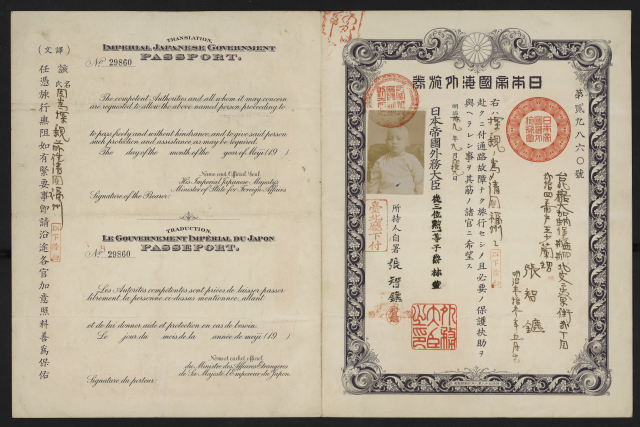 日本帝國海外旅券
第貳九八六〇號
張智
右ハ探親ノ為メ清國福州ニ
赴クニ付通路故障ナク旅行セシメ且必要ノ保護扶助ヲ
與ヘラレン事ヲ其筋ノ諸官ニ希望ス
明治
日本帝國外務大臣
林董
所持人自署
張智
TRANSLATION.
IMPERIAL JAPANESE GOVERNMENT
PASSPORT.
No 29860
The competent Authorities and all whom it may concern
are requested to allow the above named person proceeding to
to pass freely and without hindrance, and to give said person
such protection and assistance as may be required.
The day of the month of the year of Meiji (19 )
Name and Official Seal
His Imperial Japanese Majesty's
Minister of State for Foreign Affairs
Signature of the Bearer:
TRADUCTION.
LE GOUVERNEMENT IMPÉRIAL DU JAPON
PASSEPORT.
No 29860
Les Autorités compétentes sont priées de laisser passer
librement la personne ci-dessus mentionnée, allant
et de lui donner aide et protection en cas de besoin.
Le jour du mois de la année de meiji (19 )
Nom et cachet officiel
du Ministre des Affaires Étrangères
de Sa Majesté l'Empereur du Japon.
Signature du porteur:
(譯文)
該氏名因為探親前往清國福州
任憑旅行無阻如有緊要事卽請沿途各官加意照料善為保佑